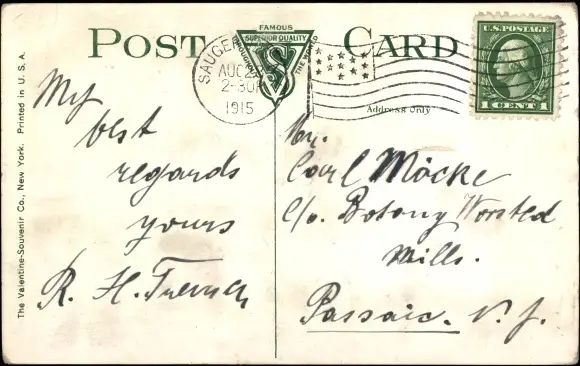 POST CARD
FAMOUS
SUPERIOR QUALITY
THROUGHOUT THE WORLD
AUG 2
2-30P
1915
U.S. POSTAGE
1 CENT 1
Address Only
The Valentine-Souvenir Co., New York. Printed in U. S. A.
My
best
regards
yours
R. H.
Mr.
Carl Möcke
c/o. Botany Worsted
Mills.
Passaic. N. J.